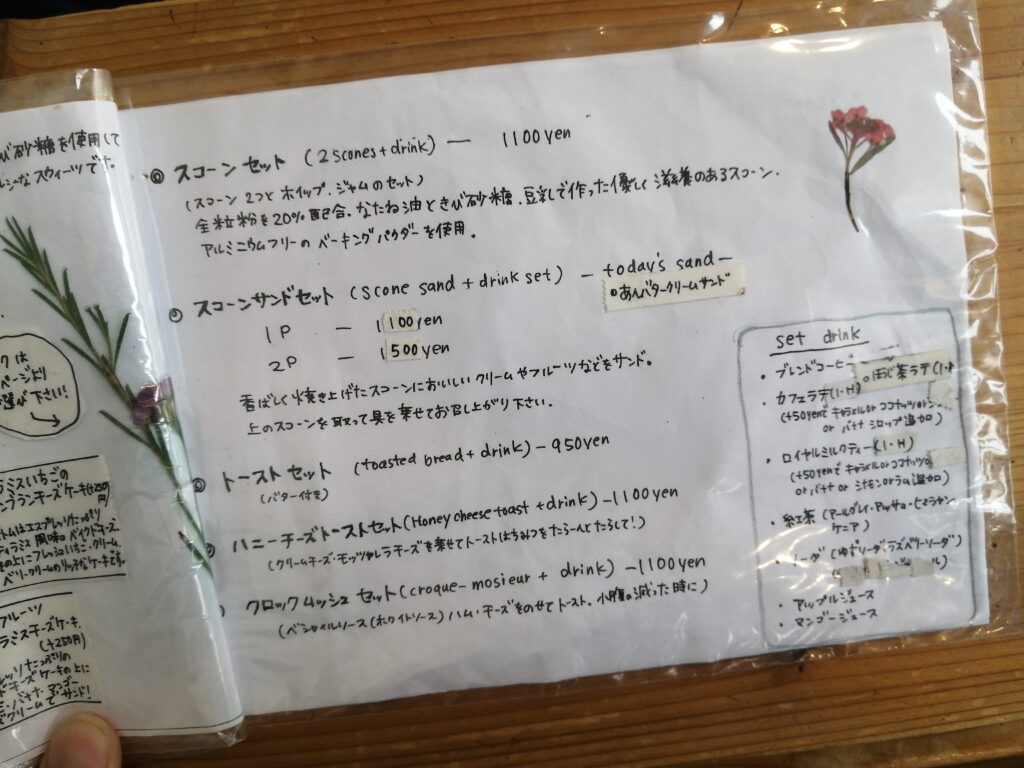 び砂糖を使用して
ルシーなスウィーツです。
◎ スコーンセット (2 scones + drink) — 1100yen
(スコーン 2つと ホイップ・ジャムのセット)
全粒粉を20%配合。かたね油ときび砂糖、豆乳で作った優しく滋養のあるスコーン。
アルミニウムフリーの ベーキングパウダーを使用。
スコーンサンドセット (scone sand + drink set) — today's sand —
◎あんバタークリームサンド
1P — 1100yen
2P — 1500yen
香ばしく焼き上げたスコーンにおいしいクリームやフルーツなどをサンド。
上のスコーンを取って具を乗せてお召し上がり下さい。
トーストセット (toasted bread + drink) — 950yen
(バター付き)
ハニーチーズトーストセット (Honey cheese toast + drink) — 1100yen
(クリームチーズ・モッツァレラチーズを乗せてトーストはちみつをたらーんとたらして!)
クロックムッシュセット (croque-mosieur + drink) — 1100yen
(ベシャメルソース(ホワイトソース) ハム・チーズをのせてトースト。小腹の減った時に)
set drink
・ブレンドコーヒー
◎ほうじ茶ラテ
・カフェラテ(I・H)
(+50yenで キャラメル or ココナッツ or
or バナナ シロップ追加)
・ロイヤルミルクティー(I・H)
(+50yenで キャラメル or ココナッツ
or バナナ or シナモン or ラム追加)
・紅茶 (アールグレイ・アッサム・ヒマラヤン・
ケニア)
・ソーダ (ゆずソーダ・ラズベリーソーダ)
・アップルジュース
・マンゴージュース
クは
ページより
選び下さい!
ラミスいちごの
ンブランチーズケーキ(+250円)
トムはエスプレッソたっぷり
ティラミス風味のベイクドチーズ。
その上にフレッシュいちご・クリーム、
ベリークリームのリッチなケーキです。
フルーツ
ラミスチーズケーキ
(+250円)
レッソたっぷりの
ドチーズケーキの上に
バナナ・マンゴー
クリームでサンド!